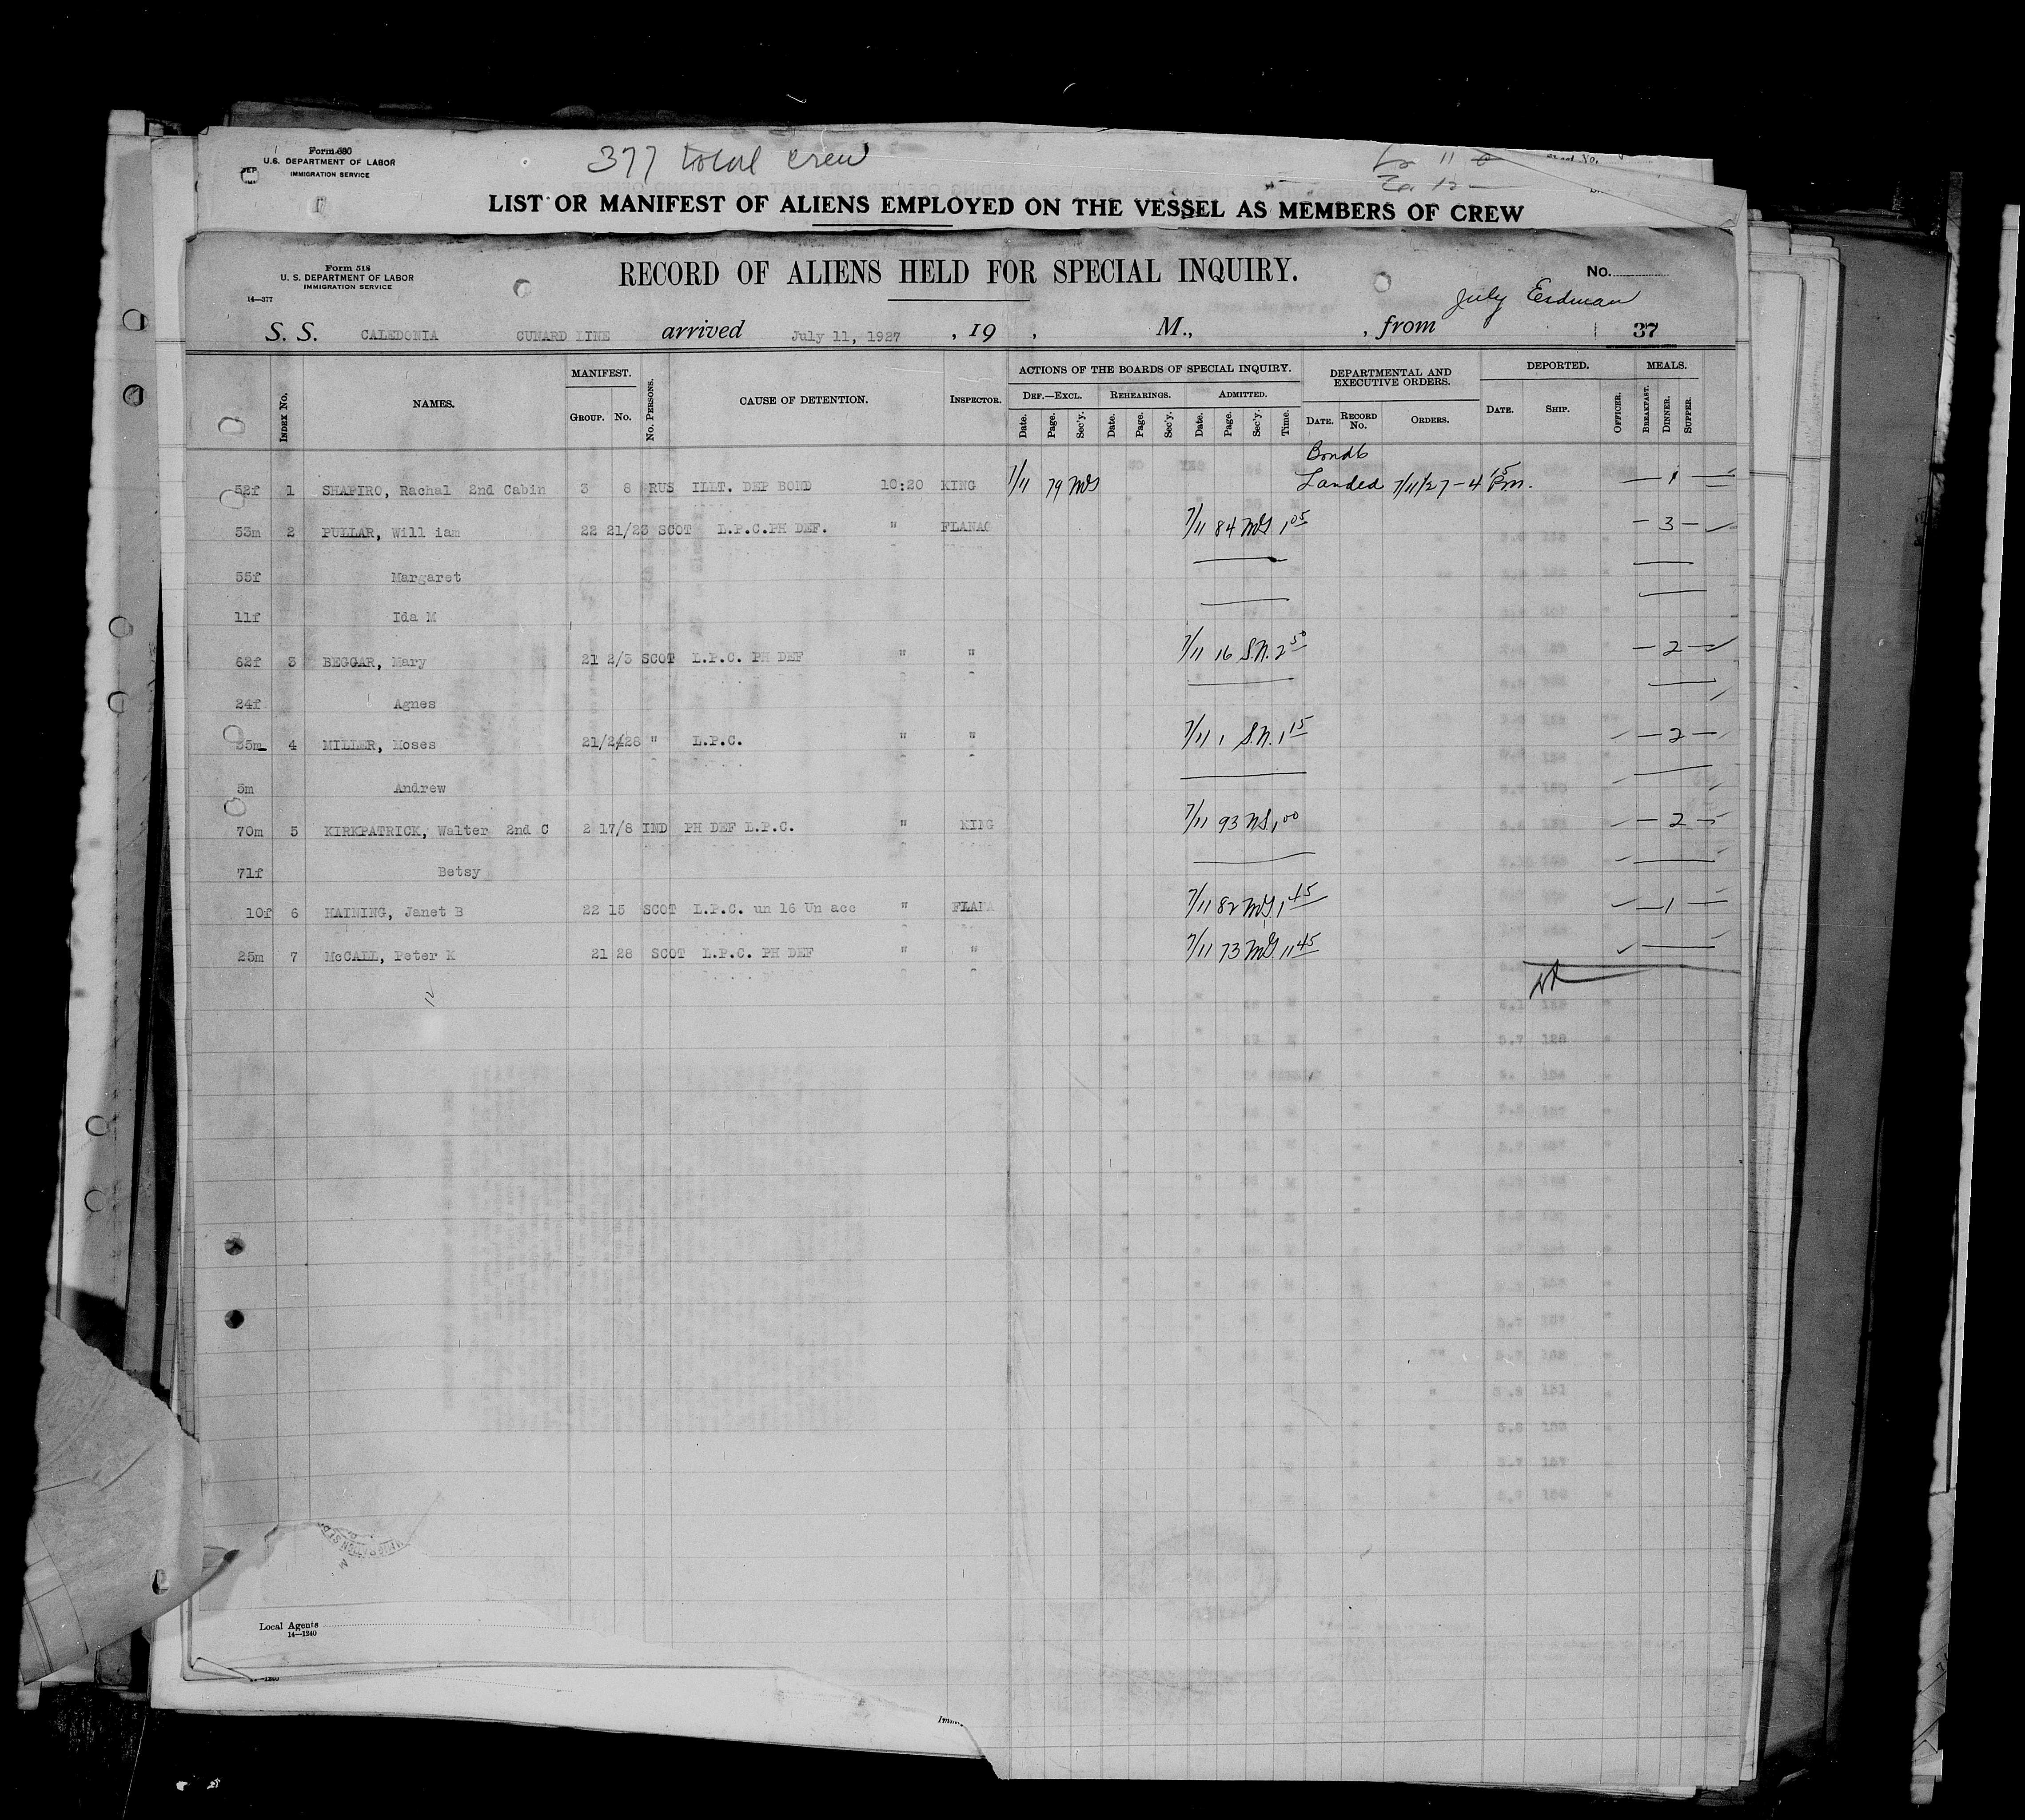 Form 680
U.S. DEPARTMENT OF LABOR
IMMIGRATION SERVICE
377 total crew
LIST OR MANIFEST OF ALIENS EMPLOYED ON THE VESSEL AS MEMBERS OF CREW
Form 518
U. S. DEPARTMENT OF LABOR
IMMIGRATION SERVICE
14—377
RECORD OF ALIENS HELD FOR SPECIAL INQUIRY.
No.
July Erdman
S. S. CALEDONIA CUNARD LINE arrived July 11, 1927, 19 , M., , from 37
INDEX No. NAMES. MANIFEST. GROUP. No. No. PERSONS. CAUSE OF DETENTION. INSPECTOR.
ACTIONS OF THE BOARDS OF SPECIAL INQUIRY. DEF.—EXCL. REHEARINGS. ADMITTED.
Date. Page. Sec'y. Date. Page. Sec'y. Date. Page. Sec'y. Time.
DEPARTMENTAL AND EXECUTIVE ORDERS. DATE. RECORD No. ORDERS.
DEPORTED. DATE. SHIP. OFFICER. MEALS. BREAKFAST. DINNER. SUPPER.
Bond
52f 1 SHAPIRO, Rachal 2nd Cabin 3 8 RUS ILLT. DEP BOND 10:20 KING 7/11 79 Landed 7/11/27 - 4 15 Pm. — 1 —
53m 2 PULLAR, Will iam 22 21/23 SCOT L.P.C.PH DEF. " FLANAG 7/11 84 1 05 — 3 —
55f Margaret
11f Ida M
62f 3 BEGGAR, Mary 21 2/3 SCOT L.P.C. PH DEF " " 7/11 16 S.N. 2 50 — 2 —
24f Agnes
35m 4 MILLER, Moses 21/2 28 " L.P.C. " " 7/11 1 S.N. 1 15 — 2 —
5m Andrew
70m 5 KIRKPATRICK, Walter 2nd C 2 17/8 IND PH DEF L.P.C. " KING 7/11 93 1 00 — 2 —
71f Betsy
10f 6 HAINING, Janet B 22 15 SCOT L.P.C. un 16 Un acc " FLANA 7/11 82 1 45 — 1 —
25m 7 McCALL, Peter K 21 28 SCOT L.P.C. PH DEF " " 7/11 73 11 45
12
Local Agents
14—1240